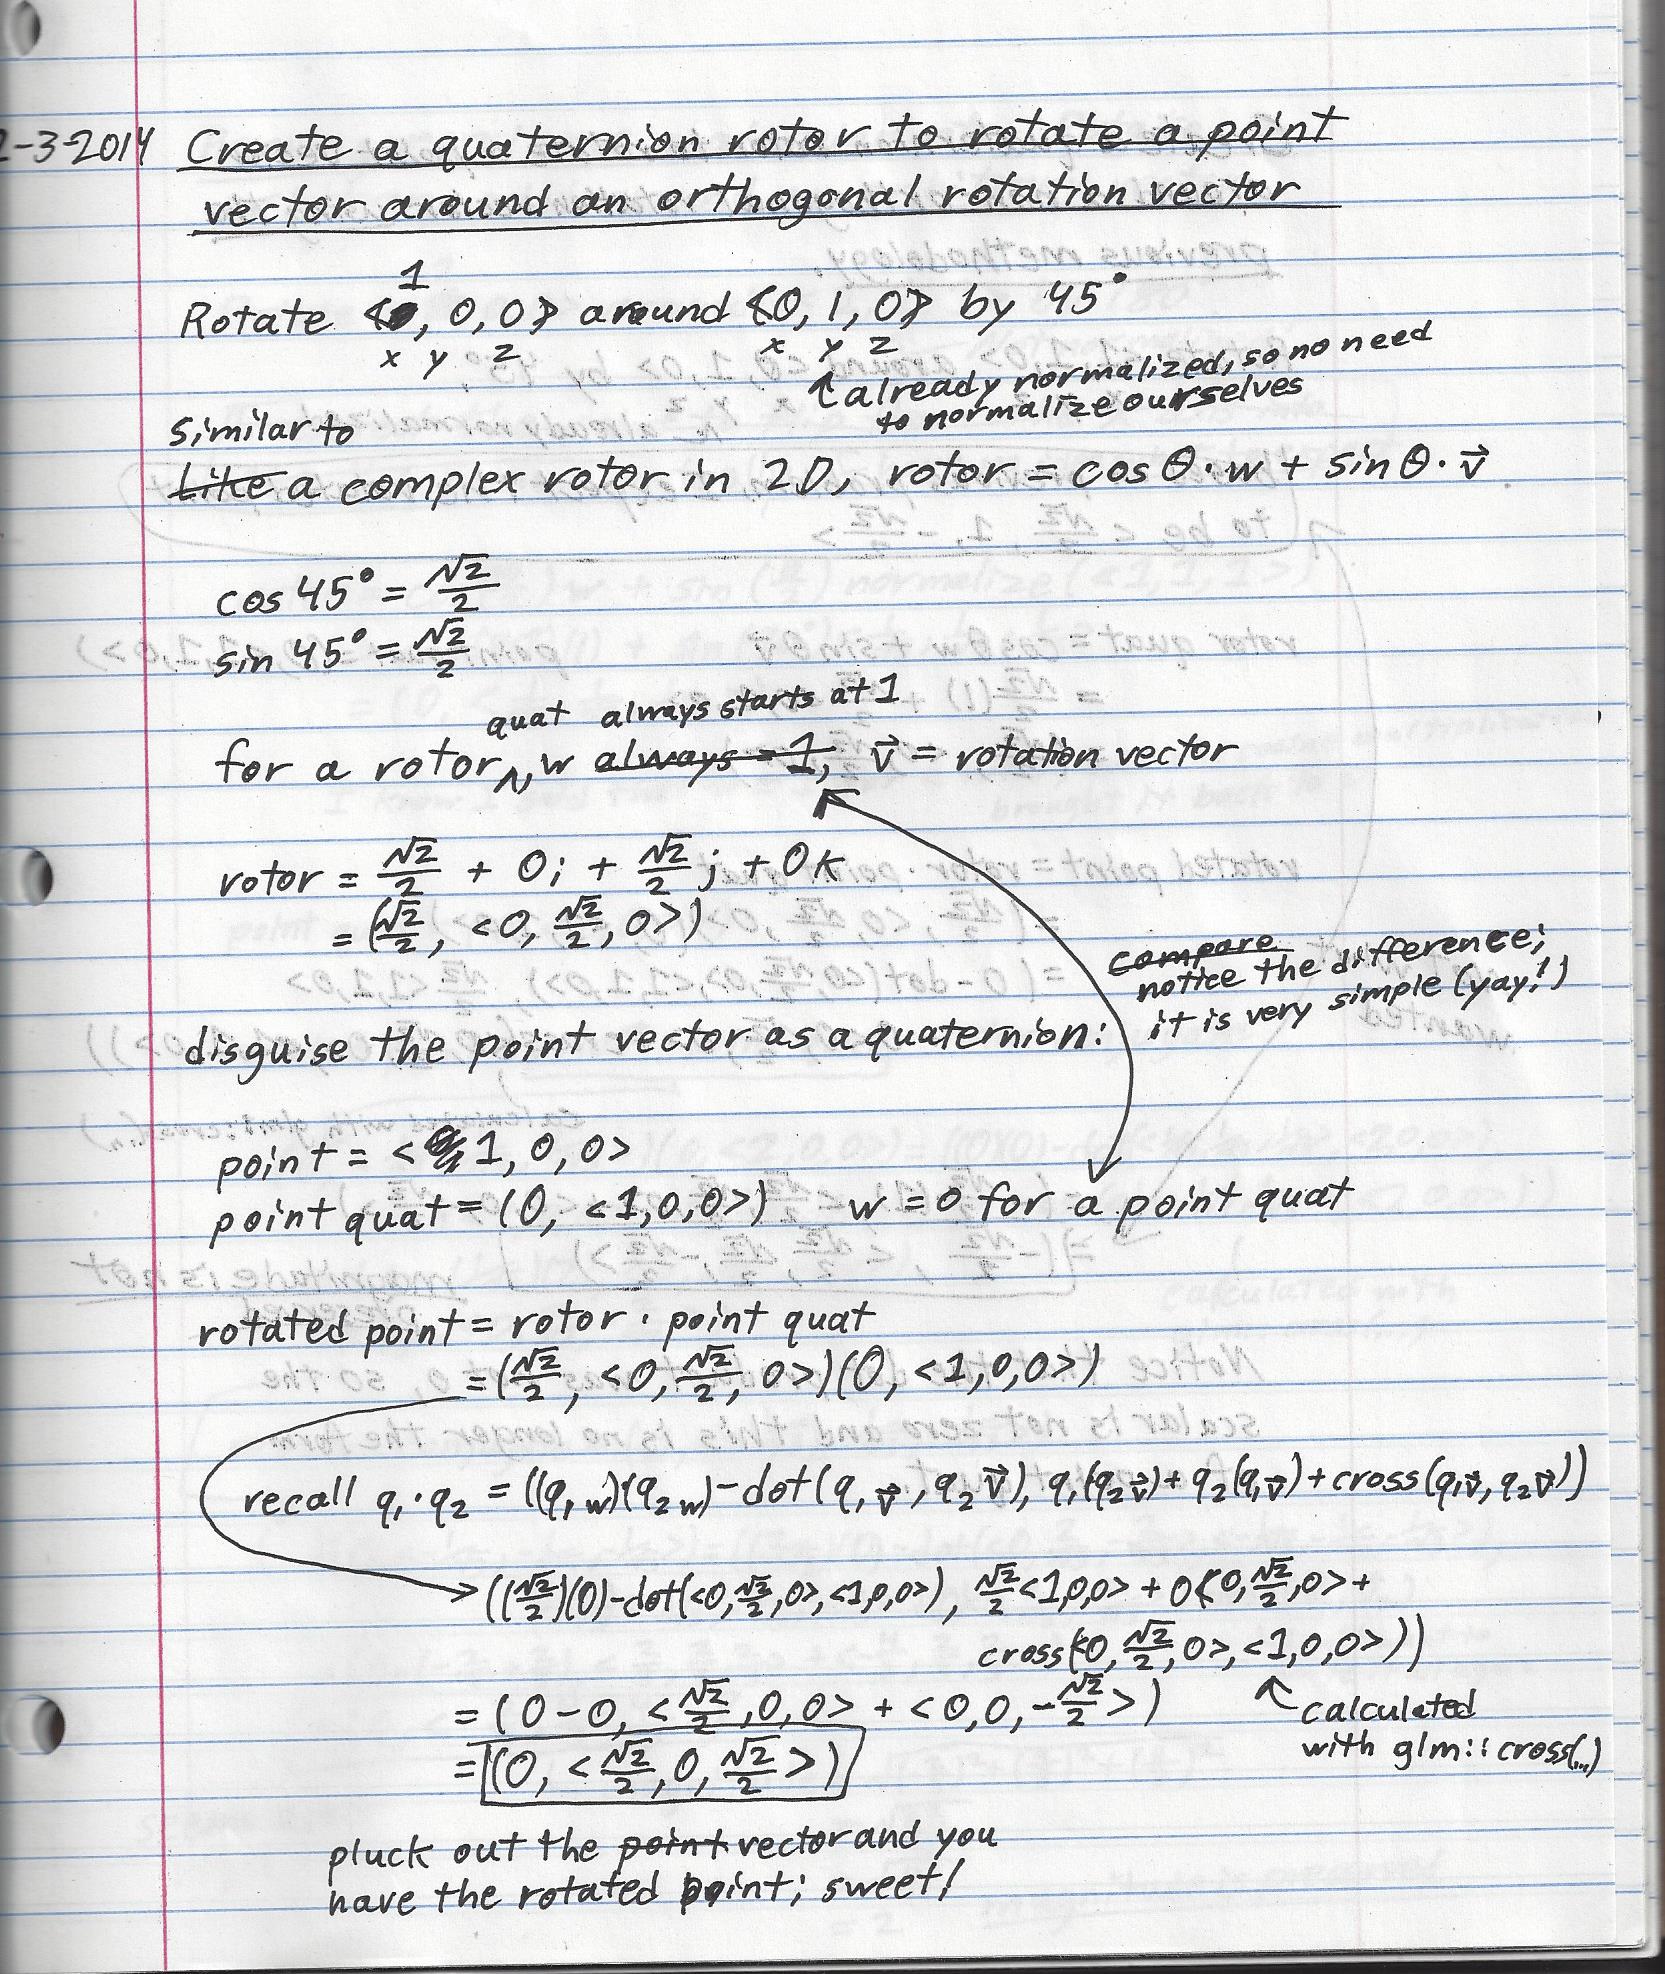 2-3-2014 Create a quaternion rotor to rotate a point
vector around an orthogonal rotation vector
1
Rotate <0, 0, 0> around <0, 1, 0> by 45°
x y z x y z
↑ already normalized, so no need
to normalize ourselves
similar to
Like a complex rotor in 2D, rotor = cos θ · w + sin θ · v⃗
cos 45° = √2/2
sin 45° = √2/2
quat always starts at 1
for a rotor ^, w always = 1, v⃗ = rotation vector
rotor = √2/2 + 0i + √2/2 j + 0k
= (√2/2, <0, √2/2, 0>)
compare
notice the difference;
it is very simple (yay!)
disguise the point vector as a quaternion:
point = <1, 0, 0>
point quat = (0, <1,0,0>) w = 0 for a point quat
rotated point = rotor · point quat
= (√2/2, <0, √2/2, 0>)(0, <1,0,0>)
recall q₁·q₂ = ((q₁w)(q₂w) - dot(q₁v⃗, q₂v⃗), q₁(q₂v⃗) + q₂(q₁v⃗) + cross(q₁v⃗, q₂v⃗))
((√2/2)(0) - dot(<0,√2/2,0>,<1,0,0>), √2/2<1,0,0> + 0<0,√2/2,0> +
cross(<0, √2/2, 0>, <1,0,0>))
= (0 - 0, <√2/2, 0, 0> + <0, 0, -√2/2>)
↑ calculated
with glm::cross(...)
= (0, <√2/2, 0, √2/2>)
pluck out the point vector and you
have the rotated point; sweet!